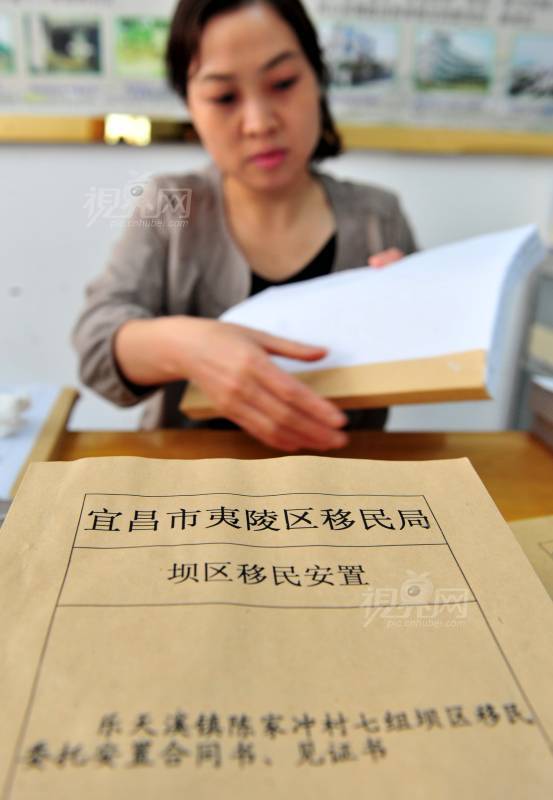 視界网
pic.cnhubei.com
宜昌市夷陵区移民局
坝区移民安置
視界网
pic.cnhubei.com
乐天溪镇陈家冲村七组坝区移民
委托安置合同书、见证书